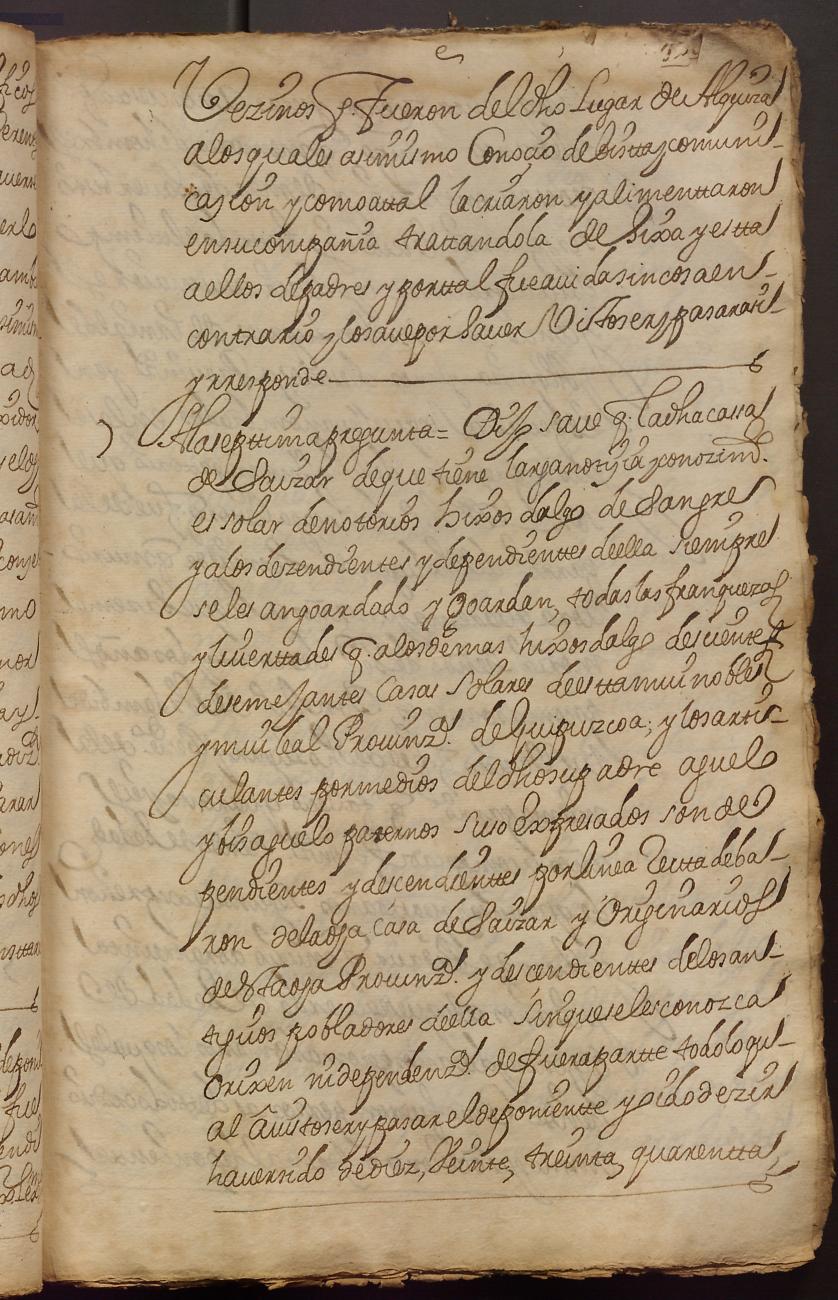 Vezinos q. Fueron del dho Lugar de Alquiza
alosquales asimismo Conoçio de bistta y comuni-
cazion y como attal la criaron y alimenttaron
en su compañia trattandola de hixa y estta
aellos de padres y por tal fue auida sin cosa en
contrario y lo saue por hauer Visto ser y pasar asi
y rresponde
A la septtima pregunta = Dijo saue q. la dha cassa
de Saizar de que tiene larga notiçia y conozimto.
es solar de notorios hixos dalgo de Sangre
y a los dezendientes y dependienttes de ella siempre
se les an goardado y goardan, todas las franquezas
y liuerttades q. a los demas hixos dalgo desciente
de semejantes Casas Solares de estta mui noble
y mui leal Prouinza. de Guipuzcoa; y los arti-
culantes por medios del dho su padre aguelo
y bisaguelo paternos suso expresados son de
pendientes y descendienttes por linea Rectta de ba-
ron de la dha Casa de Saizar y Originarios
de Sta dha Prouinza. y descendienttes de los an-
tiguos pobladores de ella sin que se les conozca
Orixen ni dependenza. de fuera partte todo lo qu-
al a uisto ser y pasar el deponiente y oido dezir
hauer sido de diez, Veinte, treinta, quarentta